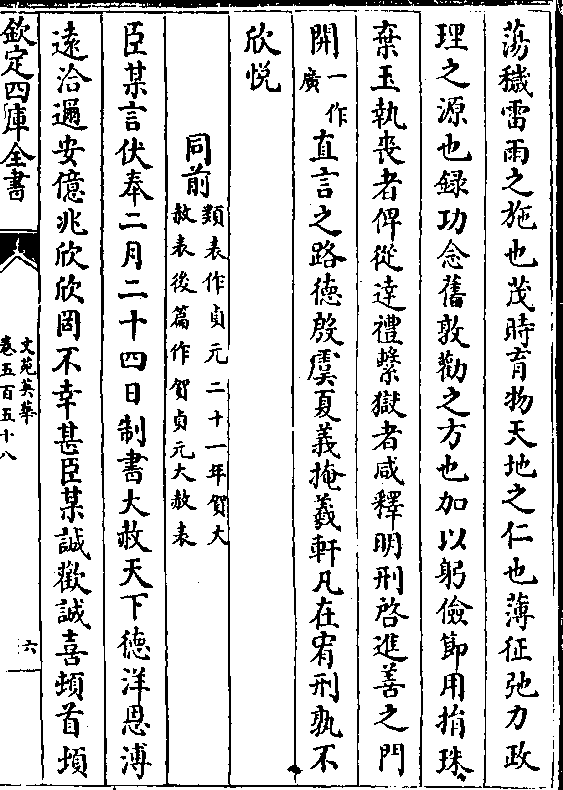 蕩穢雷雨之施也茂時育物天地之仁也薄征弛力政
理之源也録功念舊敦勸之方也加以躬儉節用捐珠
棄玉執喪者俾從達禮繫獄者咸釋明刑啓進善之門
開一作廣直言之路德殷虞夏義掩羲軒凡在宥刑孰不
欣悦
同前類表作貞元二十一年賀大赦表後篇作賀貞元大赦表
臣某言伏奉二月二十四日制書大赦天下德洋恩溥
遠洽邇安億兆欣欣罔不幸甚臣某誠歡誠喜頓首頓
欽定四庫全書
文苑英華
卷五百五十八
六